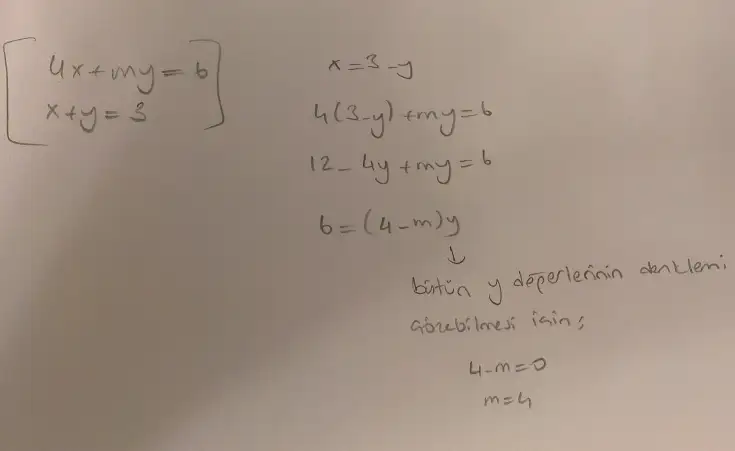 4x+my=6
x+y=3
x=3-y
4(3-y)+my=6
12-4y+my=6
6=(4-m)y
↓
bütün y değerlerinin denklemi
çözebilmesi için;
4-m=0
m=4